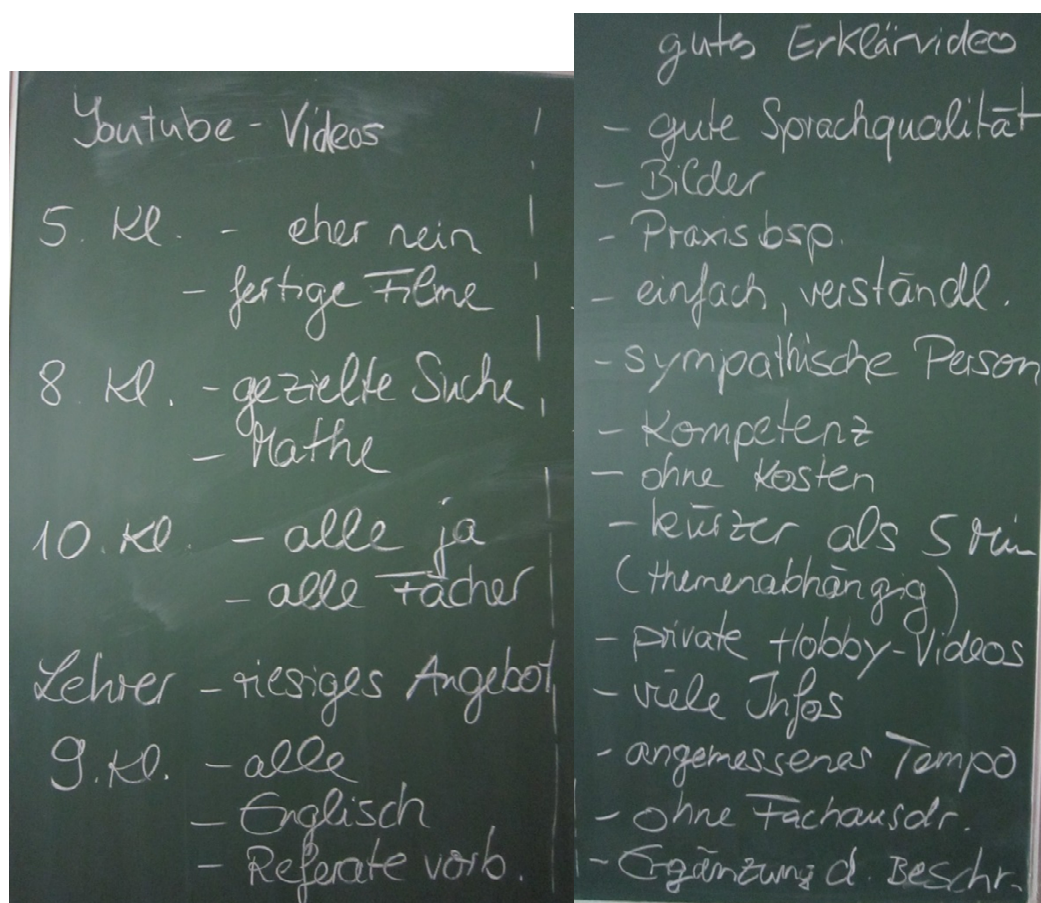 Youtube - Videos
5. Kl. - eher nein
- fertige Filme
8. Kl. - gezielte Suche
- Mathe
10. Kl. - alle ja
- alle Fächer
Lehrer - riesiges Angebot
9. Kl. - alle
- Englisch
- Referate vorb.
gutes Erklärvideo
- gute Sprachqualität
- Bilder
- Praxisbsp.
- einfach, verständl.
- sympathische Person
- Kompetenz
- ohne Kosten
- kürzer als 5 Min
(themenabhängig)
- private Hobby-Videos
- viele Infos
- angemessenes Tempo
- ohne Fachausdr.
- Ergänzung d. Beschr.